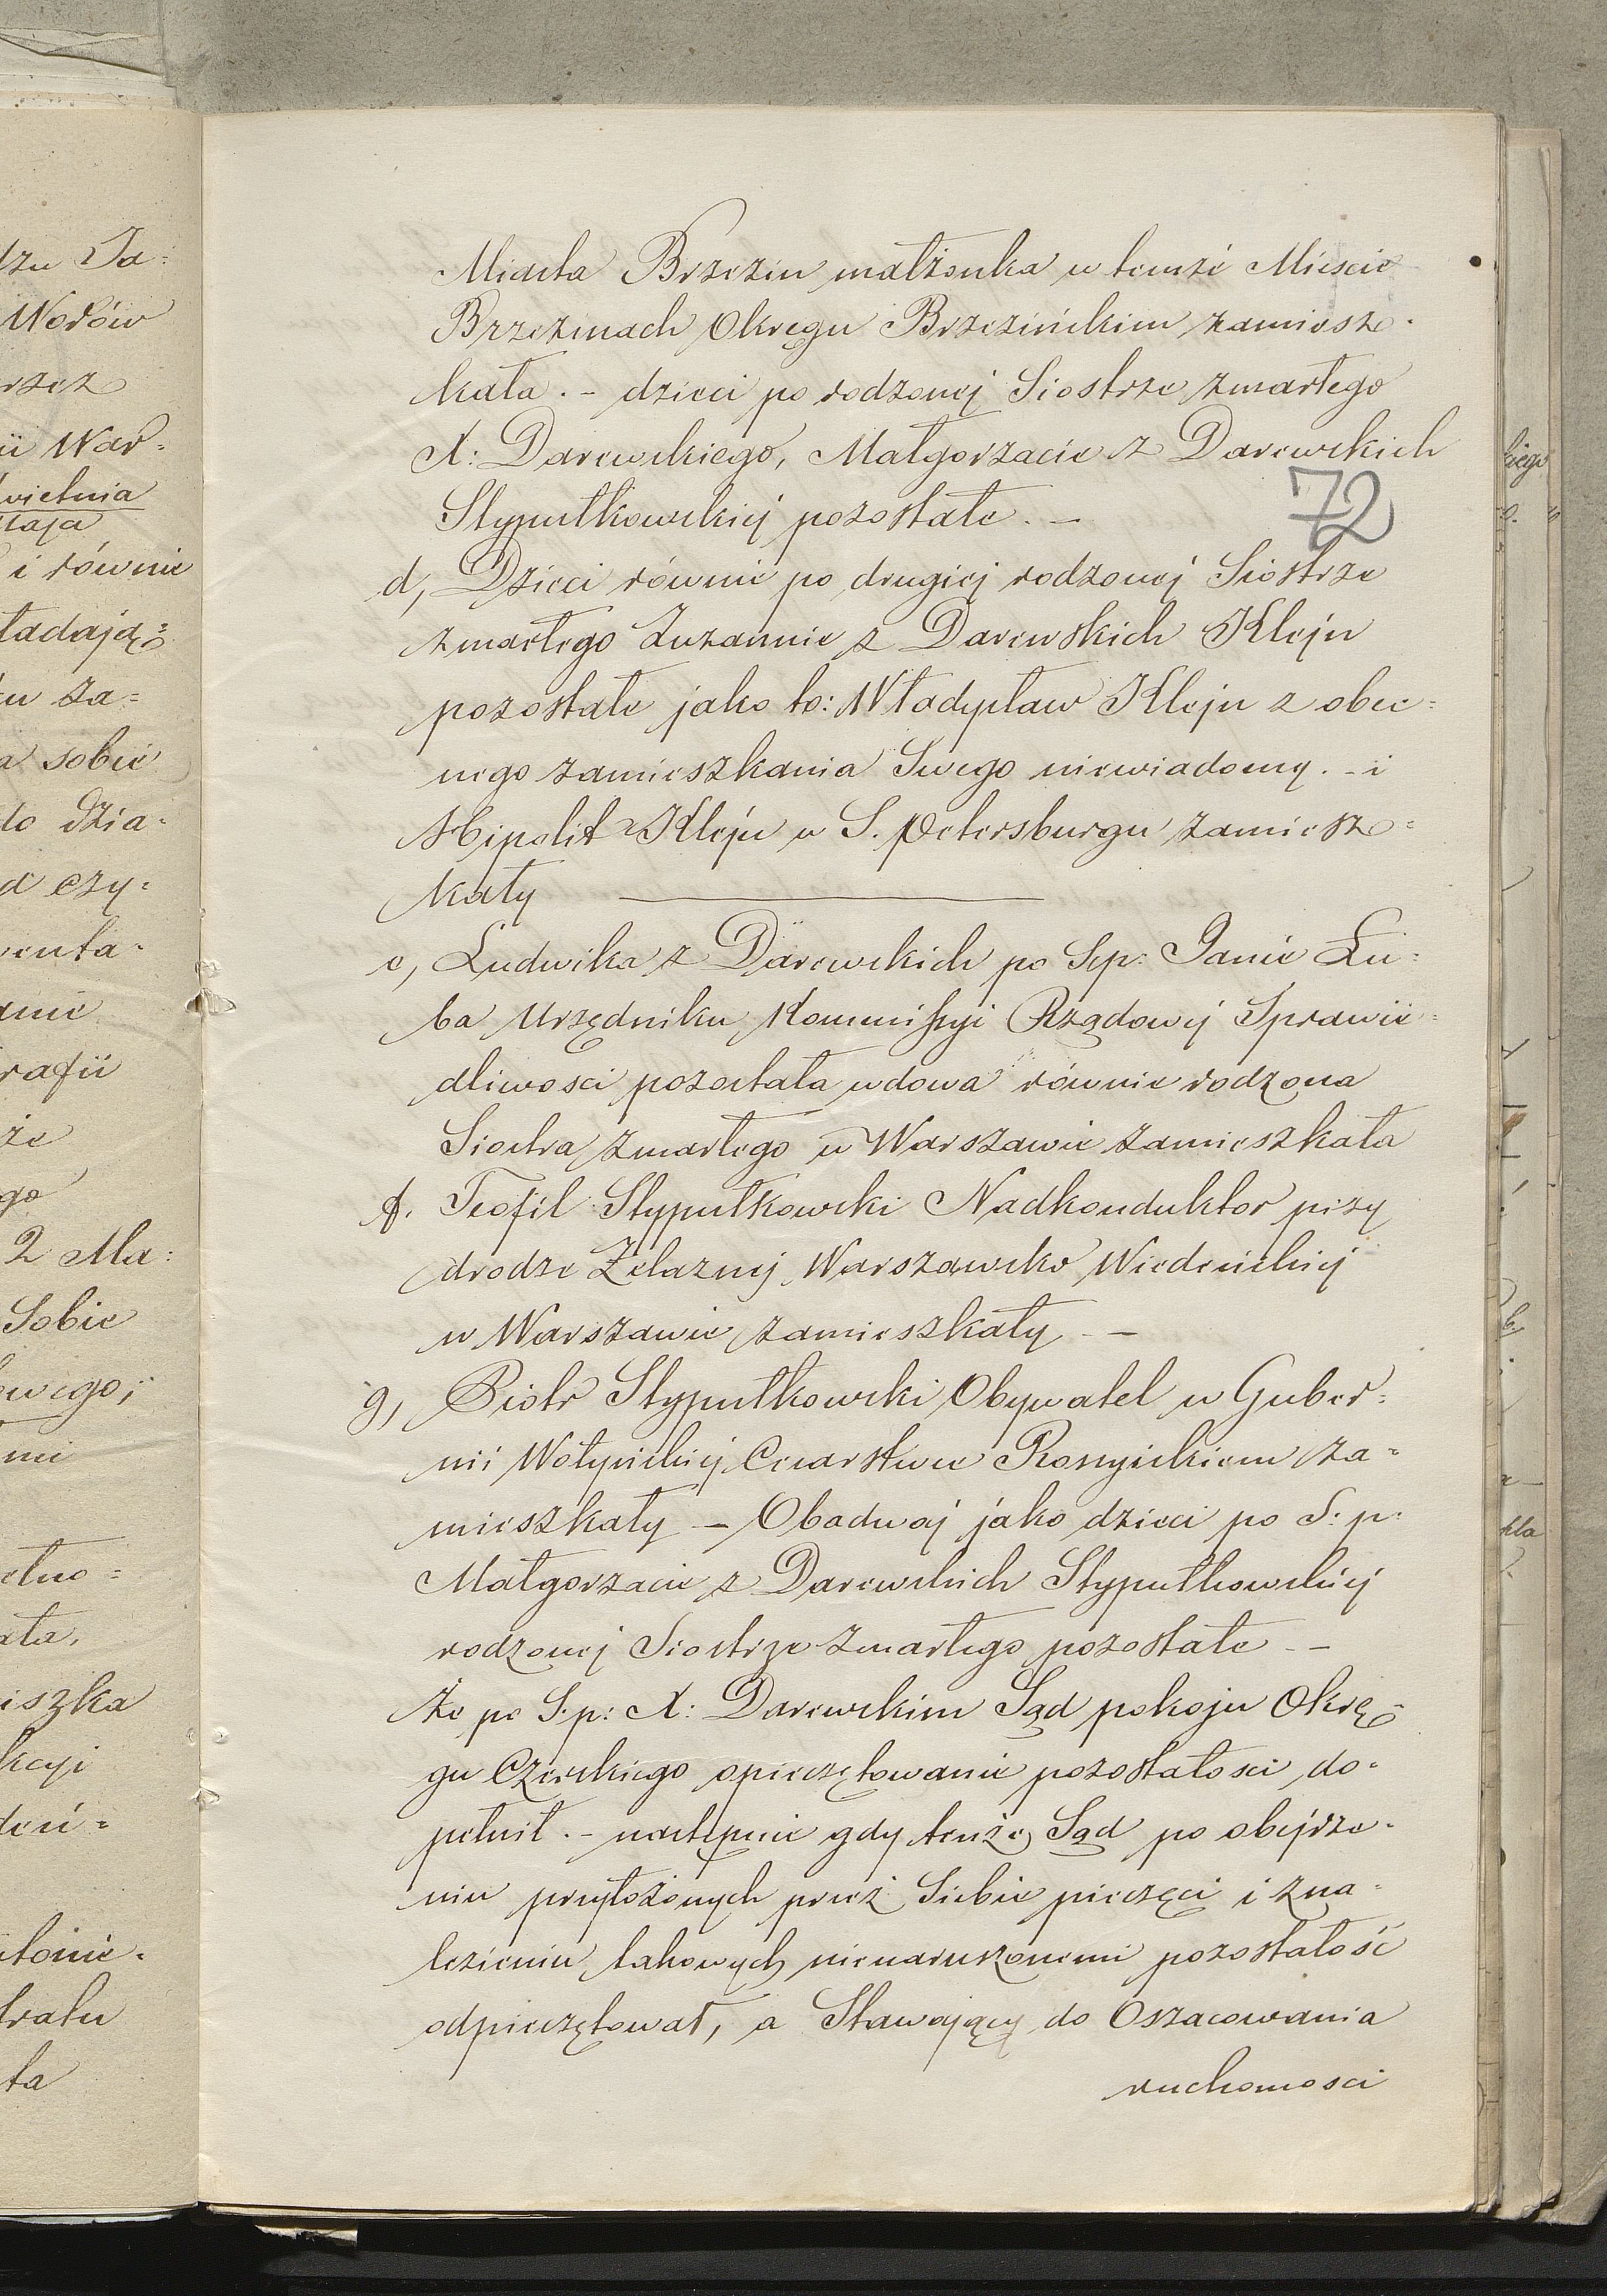 Miasta Brzezin małżonka w temże Mieście
Brzezinach Okręgu Brzezińskim zamiesz-
kała. - dzieci po rodzonej Siostrze zmarłego
X: Darewskiego, Małgorzacie z Darewskich
Stypułkowskiej pozostałe. -
72
d, Dzieci równie po drugiej rodzonej Siostrze
zmarłego Zuzannie z Darewskich Klejn
pozostałe jako to: Władysław Klejn z obec=
nego zamieszkania Swego niewiadomy. - i
Hipolit Klejn w S. Petersburgu zamiesz=
kały
e, Ludwika z Darewskich po Ś.p: Janie Łu=
ba Urzędniku Kommissyi Rządowej Sprawie=
dliwosci pozostała wdowa równie rodzona
Siostra zmarłego w Warszawie zamieszkała
f. Teofil Stypułkowski Nadkonduktor przy
drodze Żelaznej Warszawsko Wiedeńskiej
w Warszawie zamieszkały -
g, Piotr Stypułkowski Obywatel w Guber=
nii Wołyńskiej Cesarstwie Rossyjskiem za=
mieszkały - Obadwaj jako dzieci po S: p:
Małgorzacie z Darewskich Stypułkowskiej
rodzonej Siostrze zmarłego pozostałe - -
że po S.p: X: Darewskim Sąd pokoju Okrę=
gu Czerskiego opieczętowanie pozostałosci do=
pełnił. - następnie gdy tenże Sąd po obejrze=
niu przyłożonych przez Siebie pieczęci i zna=
lezieniu takowych nienaruszonemi pozostałość
odpieczętował, a Stawający do Oszacowania
ruchomosci
dzu Ja=
Worów
rzez
ii War=
kwietnia
Maja
i równie
ładają=
za=
sobie
do dzia=
czy=
menta=
rafii
że
go
2 Ma=
Sobie
mi
ała.
iszka
tratu
ta